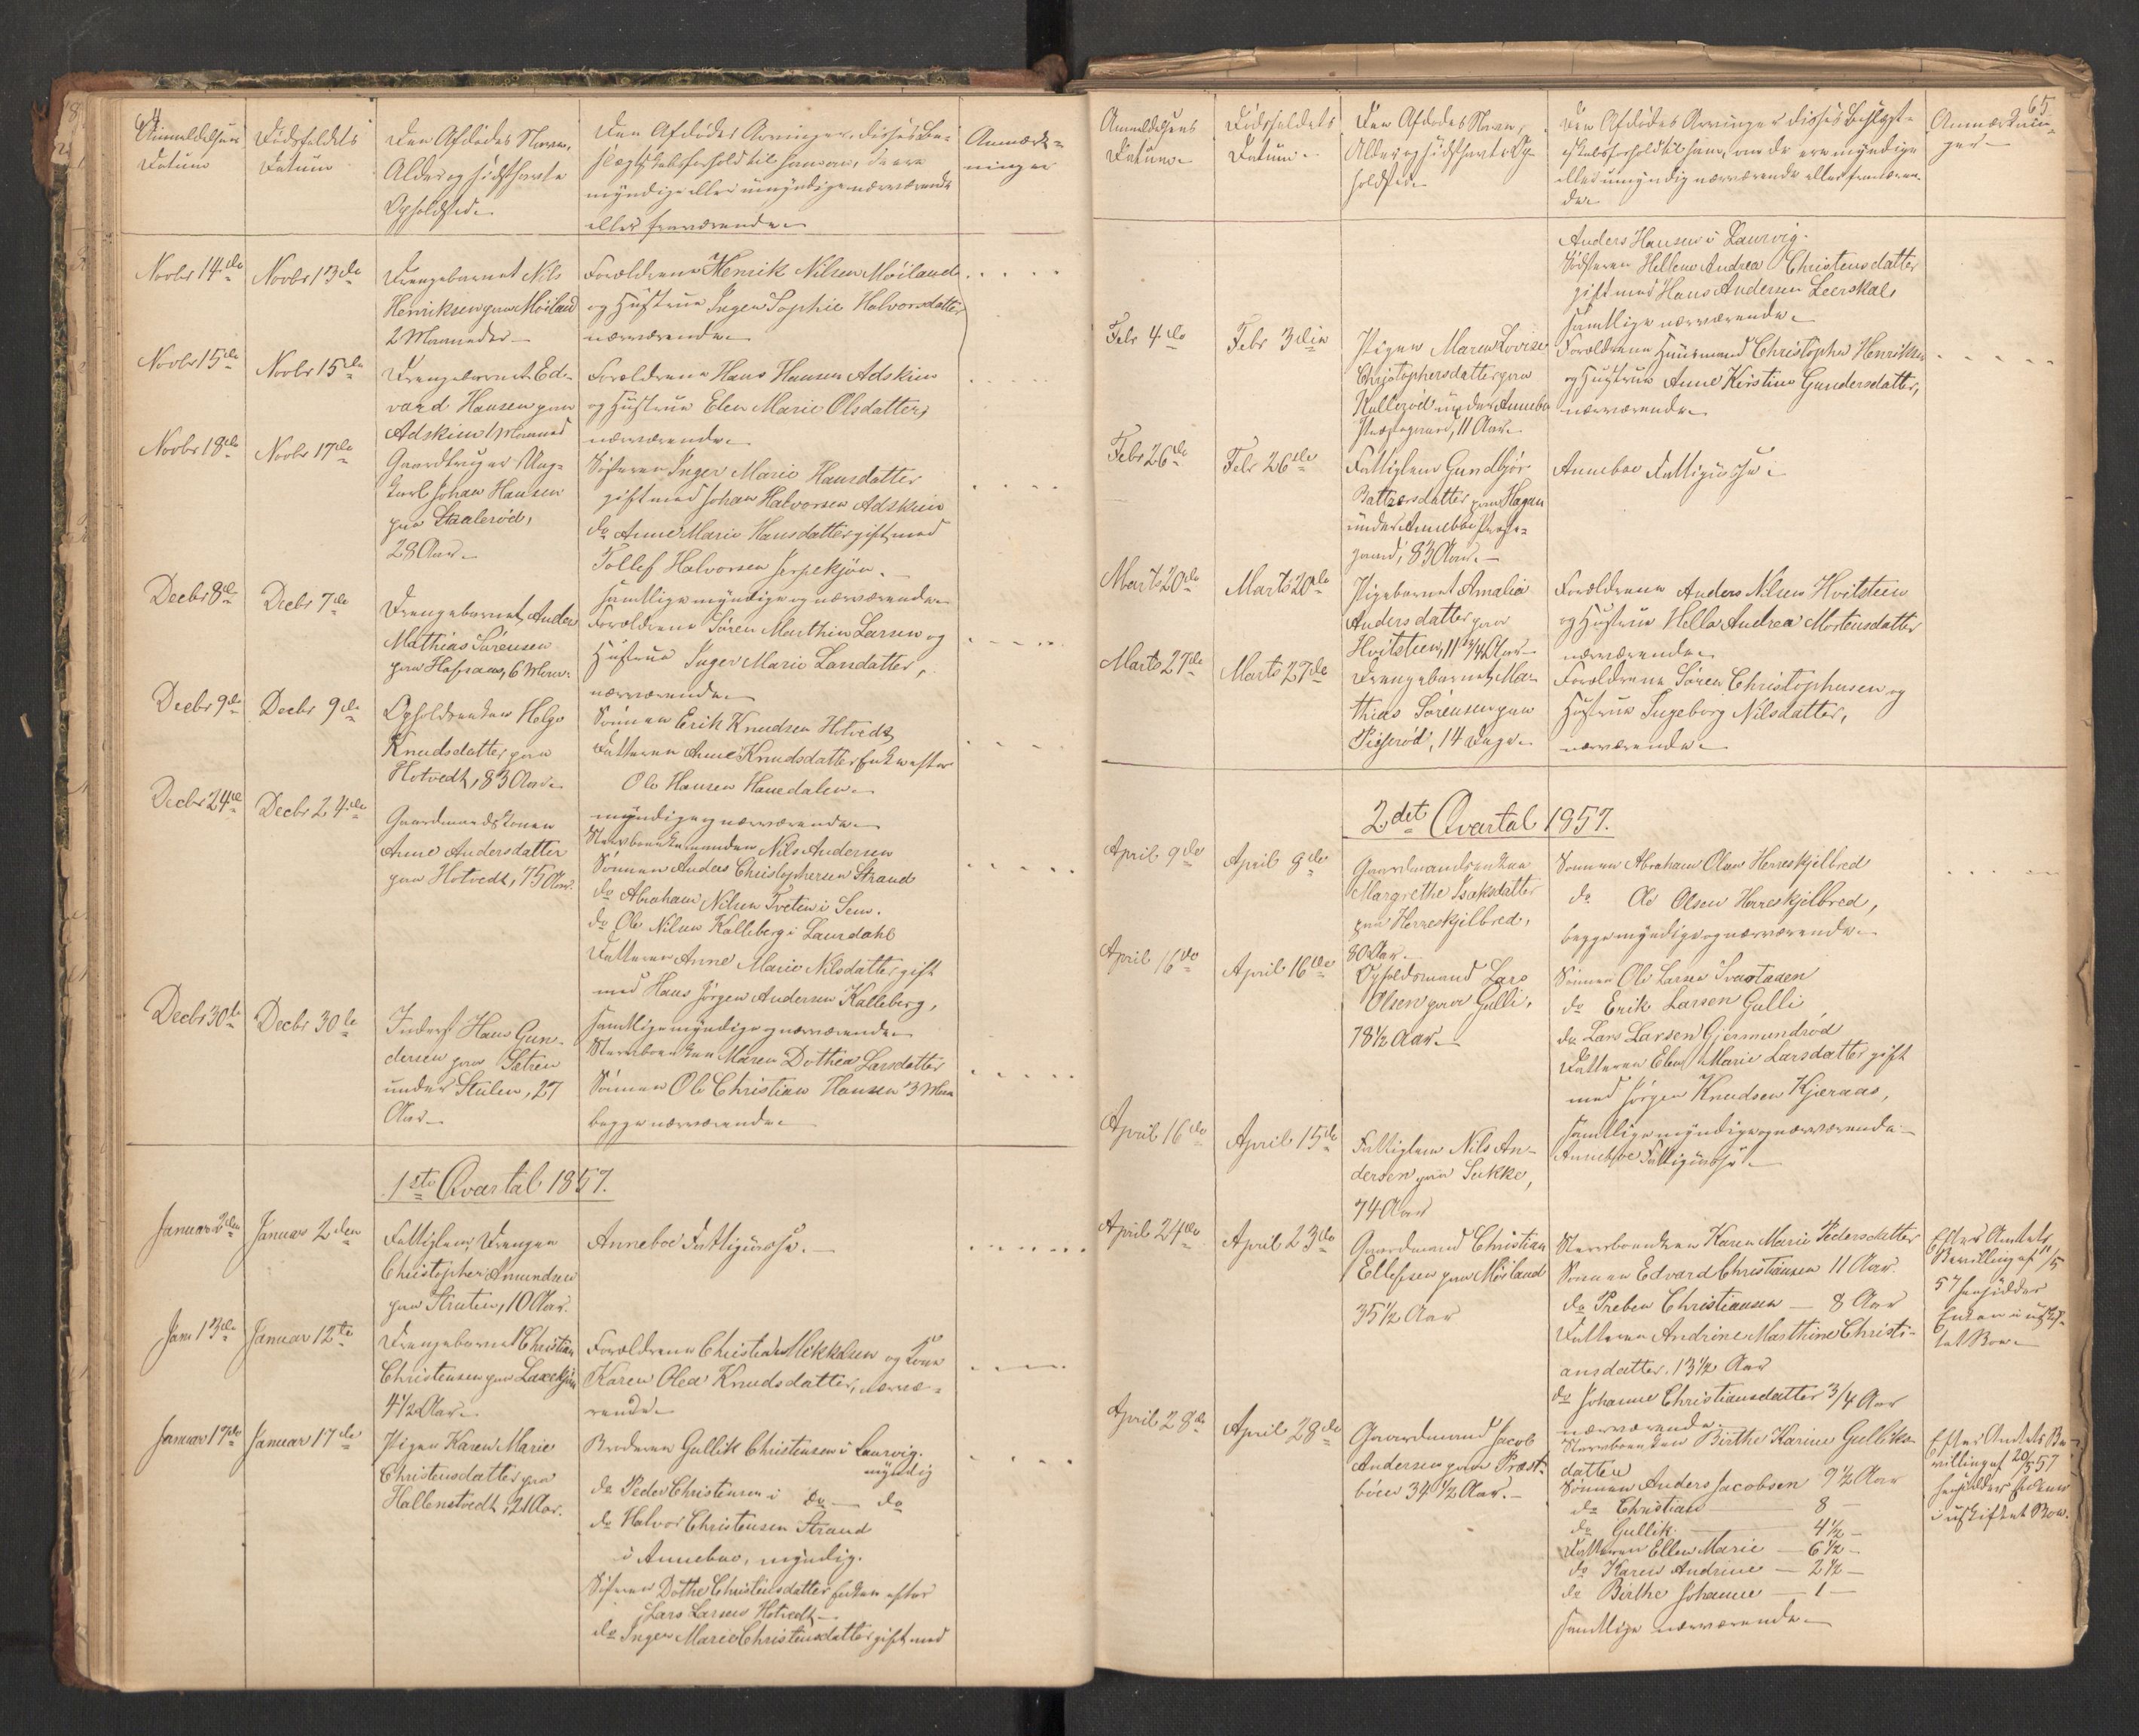 64
Anmeldelsens
Datum
Dødsfaldets
Datum
Den Afdødes Navn,
Alder og sidsthavte
Opholdsted.
Den Afdødes Arvinger, disses Be-
slægtskabsforhold til ham om de ere
myndige eller umyndige nærværende
eller fraværende.
Anmærk-
ninger
Novbr 14de
Novbr 13de
Drengebarnet Nils
Henriksen paa Møiland
2 Maaneder
Forældrene Henrik Nilsen Møiland
og Hustrue Inger Sophie Halvorsdatter
nærværende.
Novbr 15de
Novbr 15de
Drengebarnet Ed-
vard Hansen paa
Adskien 1 Maaned
Forældrene Hans Hansen Adskien
og Hustrue Elen Marie Olsdatter,
nærværende.
Novbr 18de
Novbr 17de
Gaardbruger Ung-
karl Johan Hansen
paa Staalerød,
28 Aar.
Søsteren Inger Marie Hansdatter
gift med Johan Halvorsen Adskien
do Anne Marie Hansdatter gift med
Tollef Halvorsen Jerpekjøn.
samtlige myndige og nærværende.
Decbr 8de
Decbr 7de
Drengebarnet Anders
Mathias Sørensen
paa Hafsaas, 6 Maan.
Forældrene Søren Marthin Larsen og
Hustrue Inger Marie Larsdatter,
nærværende.
Decbr 9de
Decbr 9de
Opholdsenken Helge
Knudsdatter paa
Hotvedt, 83 Aar.
Sønnen Erik Knudsen Hotvedt
Datteren Anne Knudsdatter Enke efter
Ole Hansen Hanedalen.
myndige og nærværende.
Decbr 24de
Decbr 24de
Gaardmandskonen
Anne Andersdatter
paa Hotvedt, 75 Aar.
Stervboenkemanden Nils Andersen
Sønnen Anders Christophersen Strand
do Abraham Nilsen Tveten i Sem.
do Ole Nilsen Kalleberg i Laurdahl
Datteren Anne Marie Nilsdatter gift
med Hans Jørgen Andersen Kalleberg,
samtlige myndige og nærværende
Decbr 30te
Decbr 30te
Inderst Hans Gun-
dersen paa Sætren
under Stulen, 27
Aar.
Stervboenken Maren Dothea Larsdatter
Sønnen Ole Christian Hansen 3 Maan
begge nærværende.
1ste Qvartal 1857.
Januar 2den
Januar 2den
Fattiglem, Drengen
Christopher Amundsen
paa Struten, 10 Aar.
Anneboe Fattigcasse.
Jan 13de
Januar 12te
Drengebarnet Christian
Christensen paa Laxekjøn
4½ Aar.
Forældrene Christian Mikkelsen og Kone
Karen Olea Knudsdatter, nærvæ-
rende.
Januar 17de
Januar 17de
Pigen Karen Marie
Christensdatter paa
Hallenstvedt, 21 Aar.
Broderen Gullik Christensen i Laurvig.
myndig
do Peder Christensen i do — do
do Halvor Christensen Strand
i Anneboe, myndig.
Søsteren Dothe Christensdatter Enken efter
Lars Larsen Hotvedt
do Inger Marie Christensdatter gift med
65
Anmeldelsens
Datum.
Dødsfaldets
Datum.
Den Afdødes Navn,
Alder og sidsthavte Op-
holdsted.
Den Afdødes Arvinger disses Beslægt-
skabsforhold til ham, om de ere myndige
eller umyndig nærværende eller fraværen-
de.
Anmærknin-
ger
Anders Hansen i Laurvig.
Søsteren Hellene Andrea Christensdatter
gift med Hans Andersen Leerskal,
samtlige nærværende.
Febr 4de
Febr 3die
Pigen Maren Lovise
Christophersdatter paa
Kullerød under Anneboe
Præstegaard, 11 Aar.
Forældrene Huusmand Christopher Henriksen
og Hustrue Anne Kirstine Gundersdatter,
nærværende.
Febr 26de
Febr 26de
Fattiglem Gundbjør
Battersdatter paa Hagen
under Anneboe Præste-
gaard, 83 Aar.
Anneboe Fattigcasse.
Marts 20de
Marts 20de
Pigebarnet Amalia
Andersdatter paa
Hvitsteen, 11¾ Aar
Forældrene Anders Nilsen Hvitsteen
og Hustrue Hella Andrea Mortensdatter
nærværende.
Marts 27de
Marts 27de
Drengebarnet Ma-
thias Sørensen paa
Pisserød, 14 Dage.
Forældrene Søren Christophersen og
Hustrue Ingeborg Nilsdatter,
nærværende.
2det Qvartal 1857.
April 9de
April 8de
Gaardmandsenken
Margrethe Isaksdatter
paa Herreskjelbred,
80 Aar.
Sønnen Abraham Olsen Herreskjelbred
do Ole Olsen Herreskjelbred,
begge myndige og nærværende.
April 16de
April 16de
Opholdsmand Lars
Olsen paa Gulli,
78½ Aar.
Sønnen Ole Larsen Svartaaen
do Erik Larsen Gulli
do Lars Larsen Gjermundrød
Datteren Elen Marie Larsdatter gift
med Jørgen Knudsen Kjæraas,
samtlige myndige og nærværende
April 16de
April 15de
Fattiglem Nils An-
dersen paa Sukke,
74 Aar
Anneboe Fattigcasse.
April 24de
April 23de
Gaardmand Christian
Ellefsen paa Møiland
35½ Aar
Stervboenken Karen Marie Pedersdatter
Sønnen Edvard Christiansen 11 Aar
do Preben Christiansen — 8 Aar
Datteren Andrine Marthine Christi-
ansdatter. 13½ Aar
do Johanne Christiansdatter 3/4 Aar
nærværende.
Efter Amtets
Bevilling af 11/5
57 hensidder
Enken i uskif-
tet Boe.
April 28de
April 28de
Gaardmand Jacob
Andersen paa Præst-
bøen 34½ Aar.
Stervboenken Birthe Karine Gulliks-
datter
Sønnen Anders Jacobsen 9½ Aar
do Christian — 8 —
do Gullik — 4½ —
Datteren Ellen Marie — 6½ —
do Karen Andrine — 2½ —
do Birthe Johanne — 1 —
samtlige nærværende.
Efter Amtets Be-
villing af 20/5 57
hensidder Enken
i uskiftet Boe.